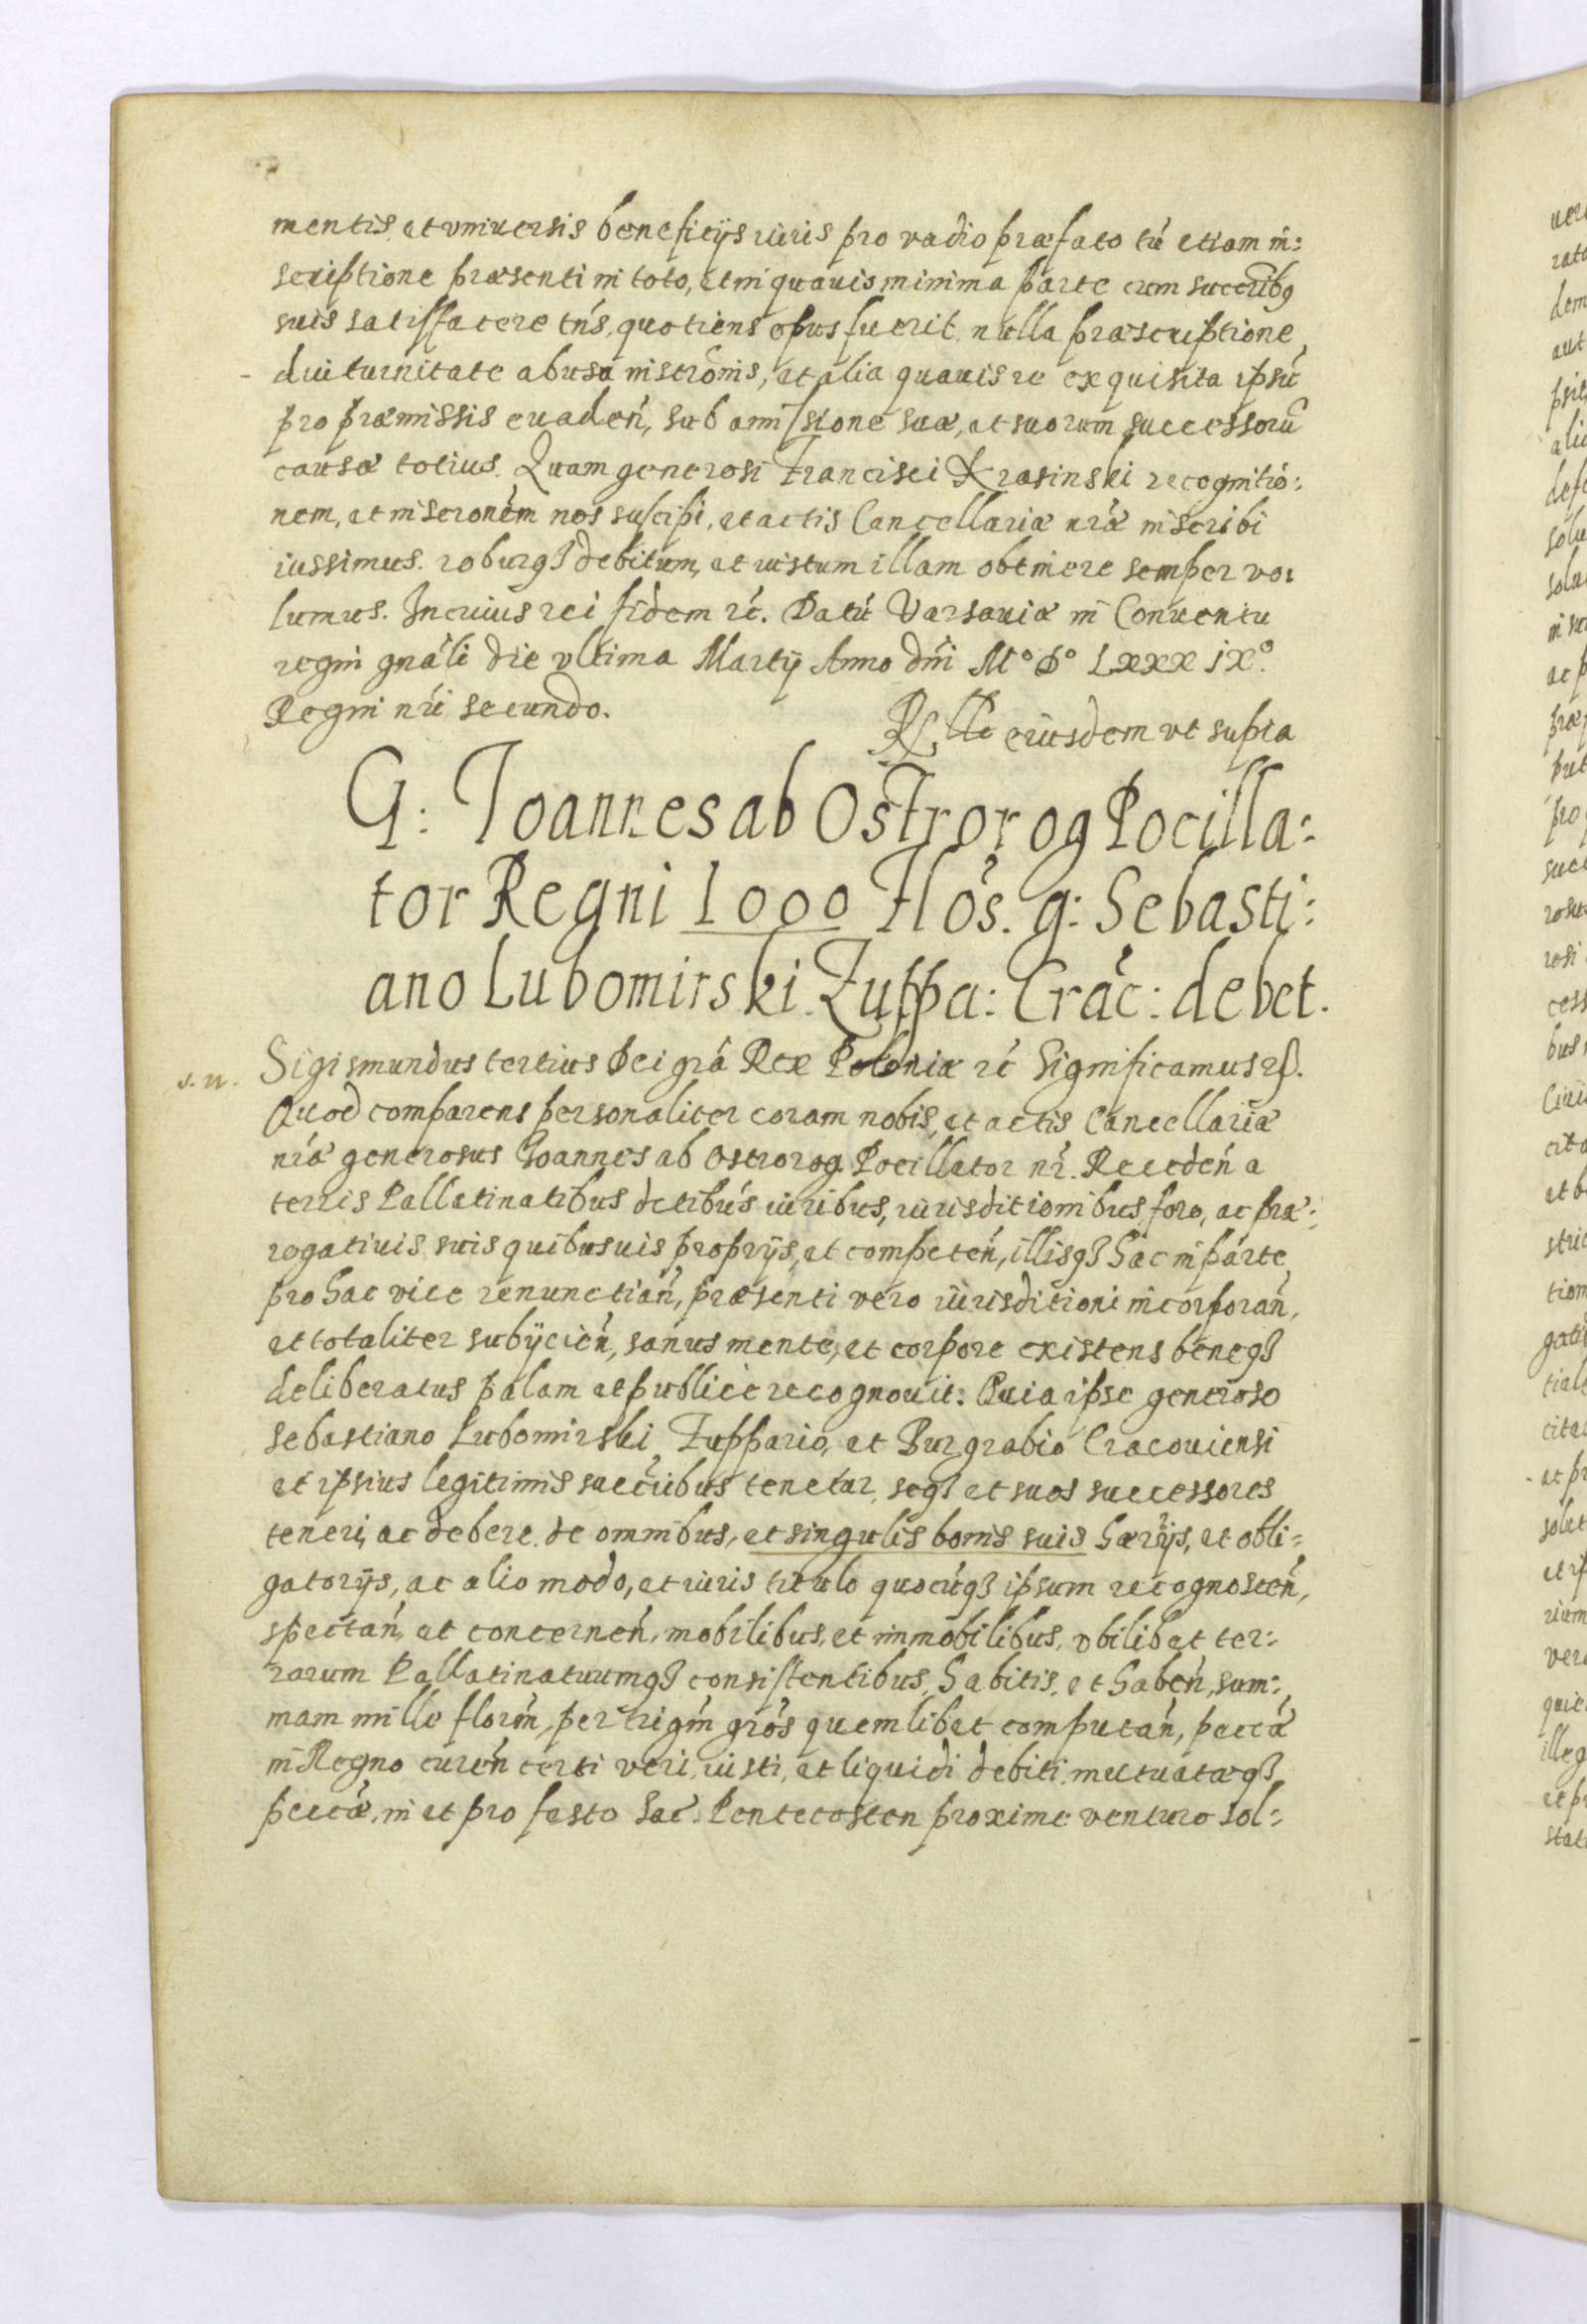 mentis, et vniuersis beneficijs iuris pro vadio præfato tú etiam in:
scriptione præsenti in toto, et in quauis minima parte cum succribus
suis satisfacere tńs, quotiens opus fuerit. nulla præscriptione,
diuturnitate abusu inscrōnis, et alia quauis re exquisita ipsú
pro præmissis euadeń, sub amissione suæ, et suorum successorú
causæ totius. Quam generosi Francisci Krasinski recognitió:
nem, et inscronem nos suscipi, et actis Cancellariæ nrǽ inscribi
iussimus. roburq₃ debitum, et iustum illam obtinere semper vo:
lumus. In cuius rei fidem rć. Datú Varsauiæ in Conuentu
regni gnáli die vltima Martij Anno dńi M° D° LXXXIX°.
Regni nŕi secundo.
eiusdem vt supra
G: Joannes ab Ostrorog Pocilla:
tor Regni 1000 Flós. g: Sebasti:
ano Lubomirski Zuppa: Crác: debet.
s. n. Sigismundus tertius Dei grá Rex Poloniæ rć Significamus rß.
Quod comparens personaliter coram nobis, et actis Cancellariæ
nrǽ generosus Joannes ab Ostrorog Pocillator nŕ. Recedeń a
terris Pallatinatibus dctibús iuribus, iurisdictionibus, foro, ac præ:
rogatiuis suis quibusuis proprijs, et competeń, illisq₃ hac in parte,
pro hac vice renunctiań, præsenti vero iurisditioni incorporań,
et totaliter subijcień, sanus mente, et corpore existens beneq₃
deliberatus palam et publicè recognouit: Quia ipse generoso
Sebastiano Lubomirski Zuppario, et Burgrabio Cracouiensi
et ipsius legitimis succribus tenetur, seq₃ et suos successores
teneri, ac debere de omnibus, et singulis bonis suis hærrijs, et obli:
gatorijs, ac alio modo, et iuris titulo quocúq₃ ipsum recognosceń,
spectań, et concerneń, mobilibus, et immobilibus, vbilibet ter:
rarum Pallatinatuumq₃ consistentibus, habitis, et habeń, sum:
mam mille floreń, per trigiń grós quemlibet computań, peccǽ
in Regno cureń certi veri, iusti, et liquidi debiti, mutuatæq₃
peccǽ, in et pro festo Sac. Pentecosten proxime venturo sol: